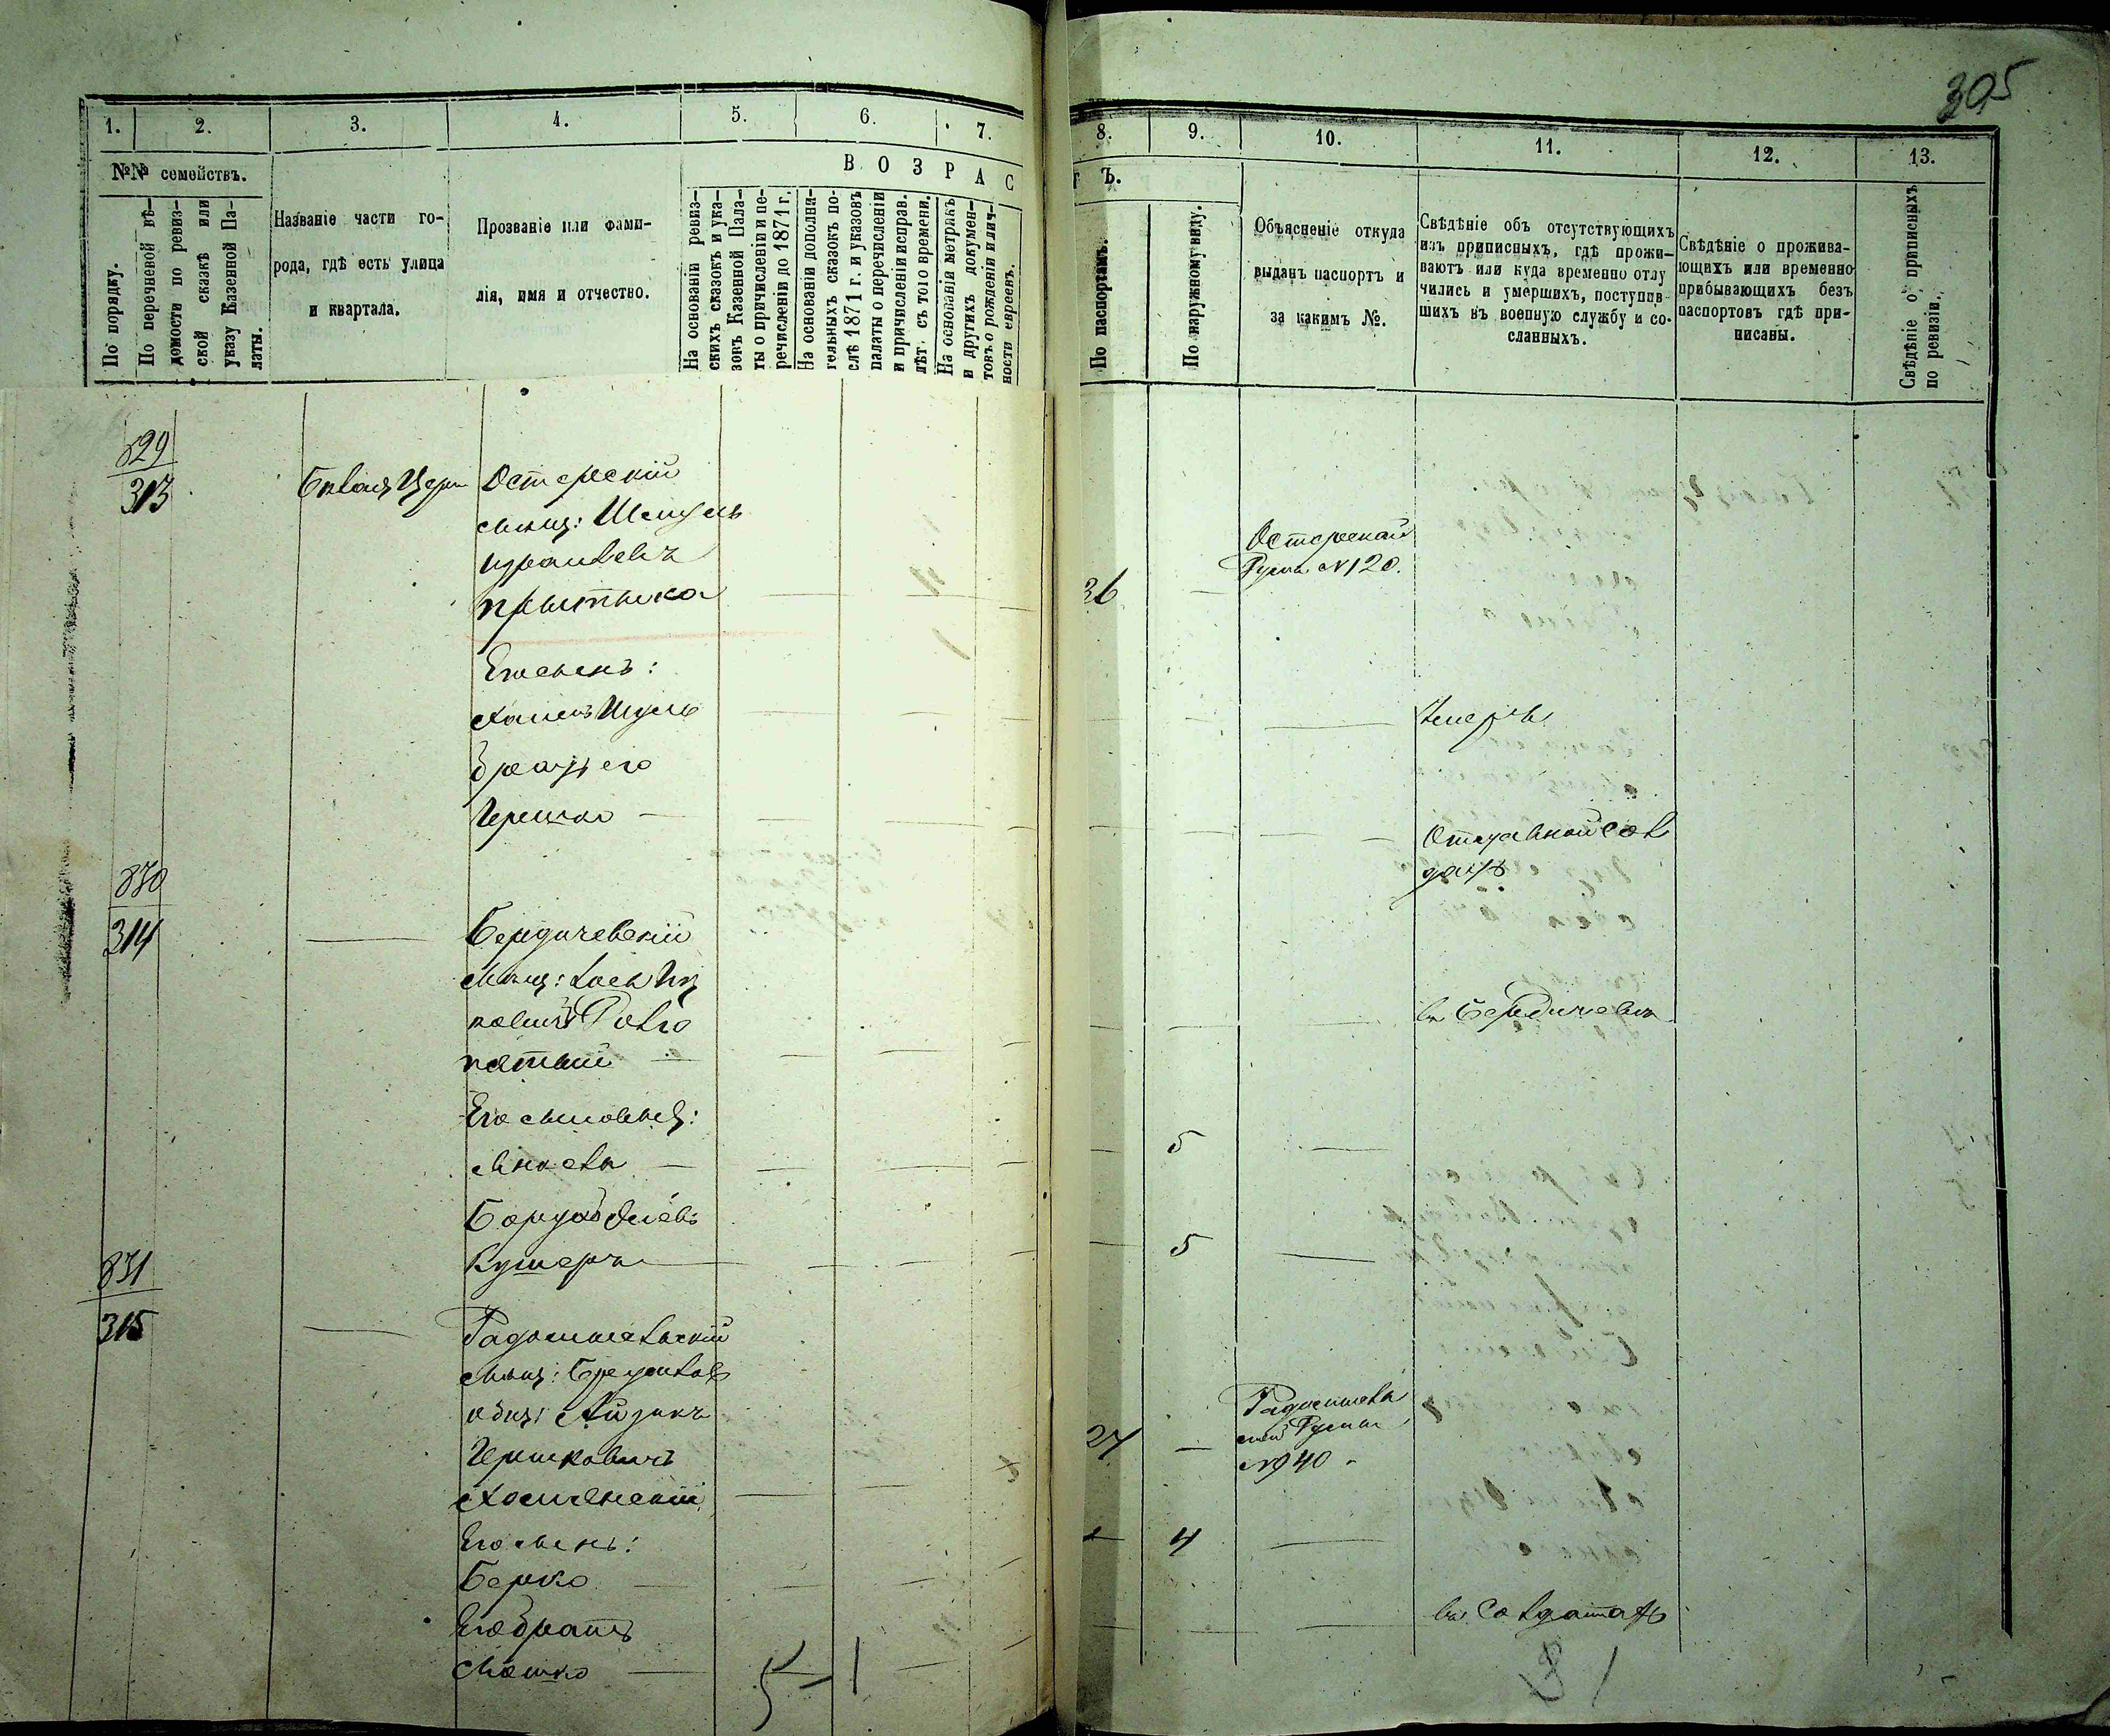 305
1.
2.
3.
4.
5.
6.
7.
8.
9.
10.
11.
12.
13.
№№ семействъ.
По порядку.
По перечневой вѣ-
домости по ревиз-
ской сказкѣ или
указу Казенной Па-
латы.
Названіе части го-
рода, гдѣ есть улица
и квартала.
Прозваніе или фами-
лія, имя и отчество.
ВОЗРАС
На основаніи ревиз-
скихъ сказокъ и ука-
зовъ Казенной Пала-
ты о причисленіи и пе-
речисленіи до 1871 г.
На основаніи дополни-
тельныхъ сказокъ по-
слѣ 1871 г. и указовъ
палаты о перечисленіи
и причисленіи исправ.
лѣт. съ того времени.
На основаніи метрикъ
и другихъ докумен-
товъ о рожденіи и лич-
ности евреевъ.
Т Ъ.
По паспортамъ.
По наружному виду.
Объясненіе откуда
выданъ паспортъ и
за какимъ №.
Свѣдѣніе объ отсутствующихъ
изъ приписныхъ, гдѣ прожи-
ваютъ или куда временно отлу
чились и умершихъ, поступив-
шихъ въ военную службу и со-
сланныхъ.
Свѣдѣніе о прожива-
ющихъ или временно
прибывающихъ безъ
паспортовъ гдѣ при-
писаны.
Свѣдѣніе о приписныхъ
по ревизіи.
829
313
Остерскій
мѣщ: Шмуль
Израилевъ
Остерской
Думы №120.
36
Его сынъ:
умеръ
братъ его
Гершко
Отставной сол
датъ
830
314
Бердичевскій
мѣщ:
въ Бердичевѣ
Его сыновья:
5
Кушеръ
5
831
315
Радомысльскій
мѣщ:
Айзикъ
Гершковичъ
27
Радомысль
ской Думы
№940
Его сынъ:
Берко
4
Его братъ
Мошко
въ Солдатахъ
5 1